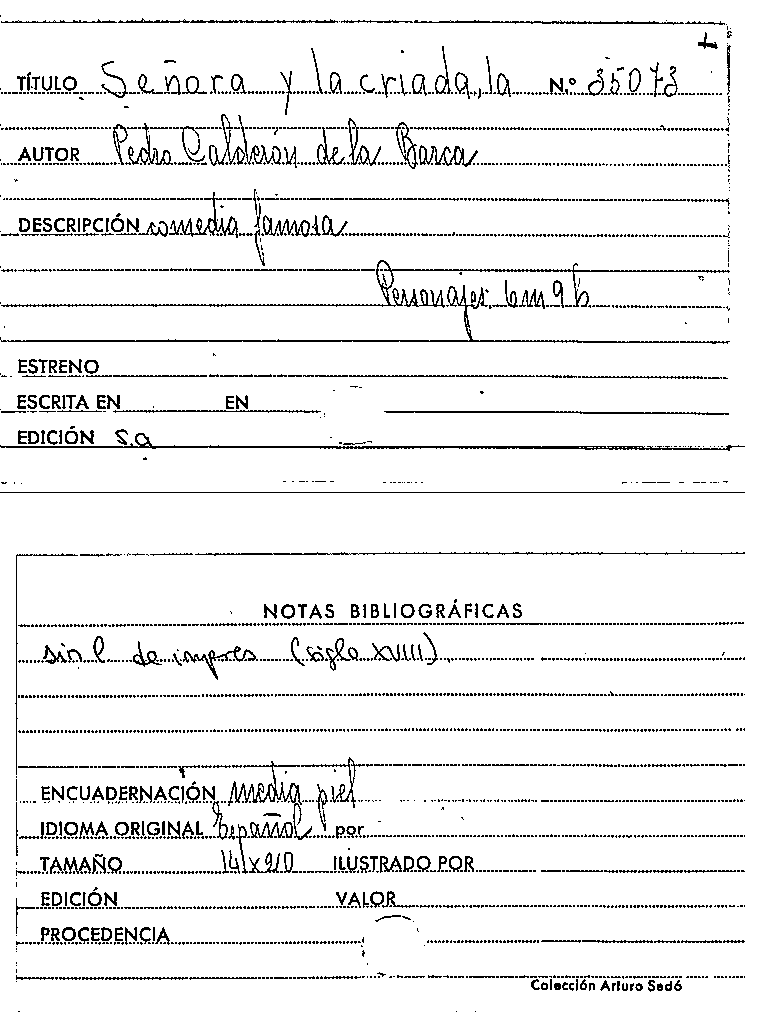 +
TÍTULO Señora y la criada, la N.º 35073
AUTOR Pedro Calderón de la Barca
DESCRIPCIÓN comedia famosa
Personajes. 6m 9h
ESTRENO
ESCRITA EN EN
EDICIÓN S.a
NOTAS BIBLIOGRÁFICAS
sin l de impres (siglo XVIII)
ENCUADERNACIÓN media piel
IDIOMA ORIGINAL Español por
TAMAÑO 14x20 ILUSTRADO POR
EDICIÓN VALOR
PROCEDENCIA
Colección Arturo Sedó